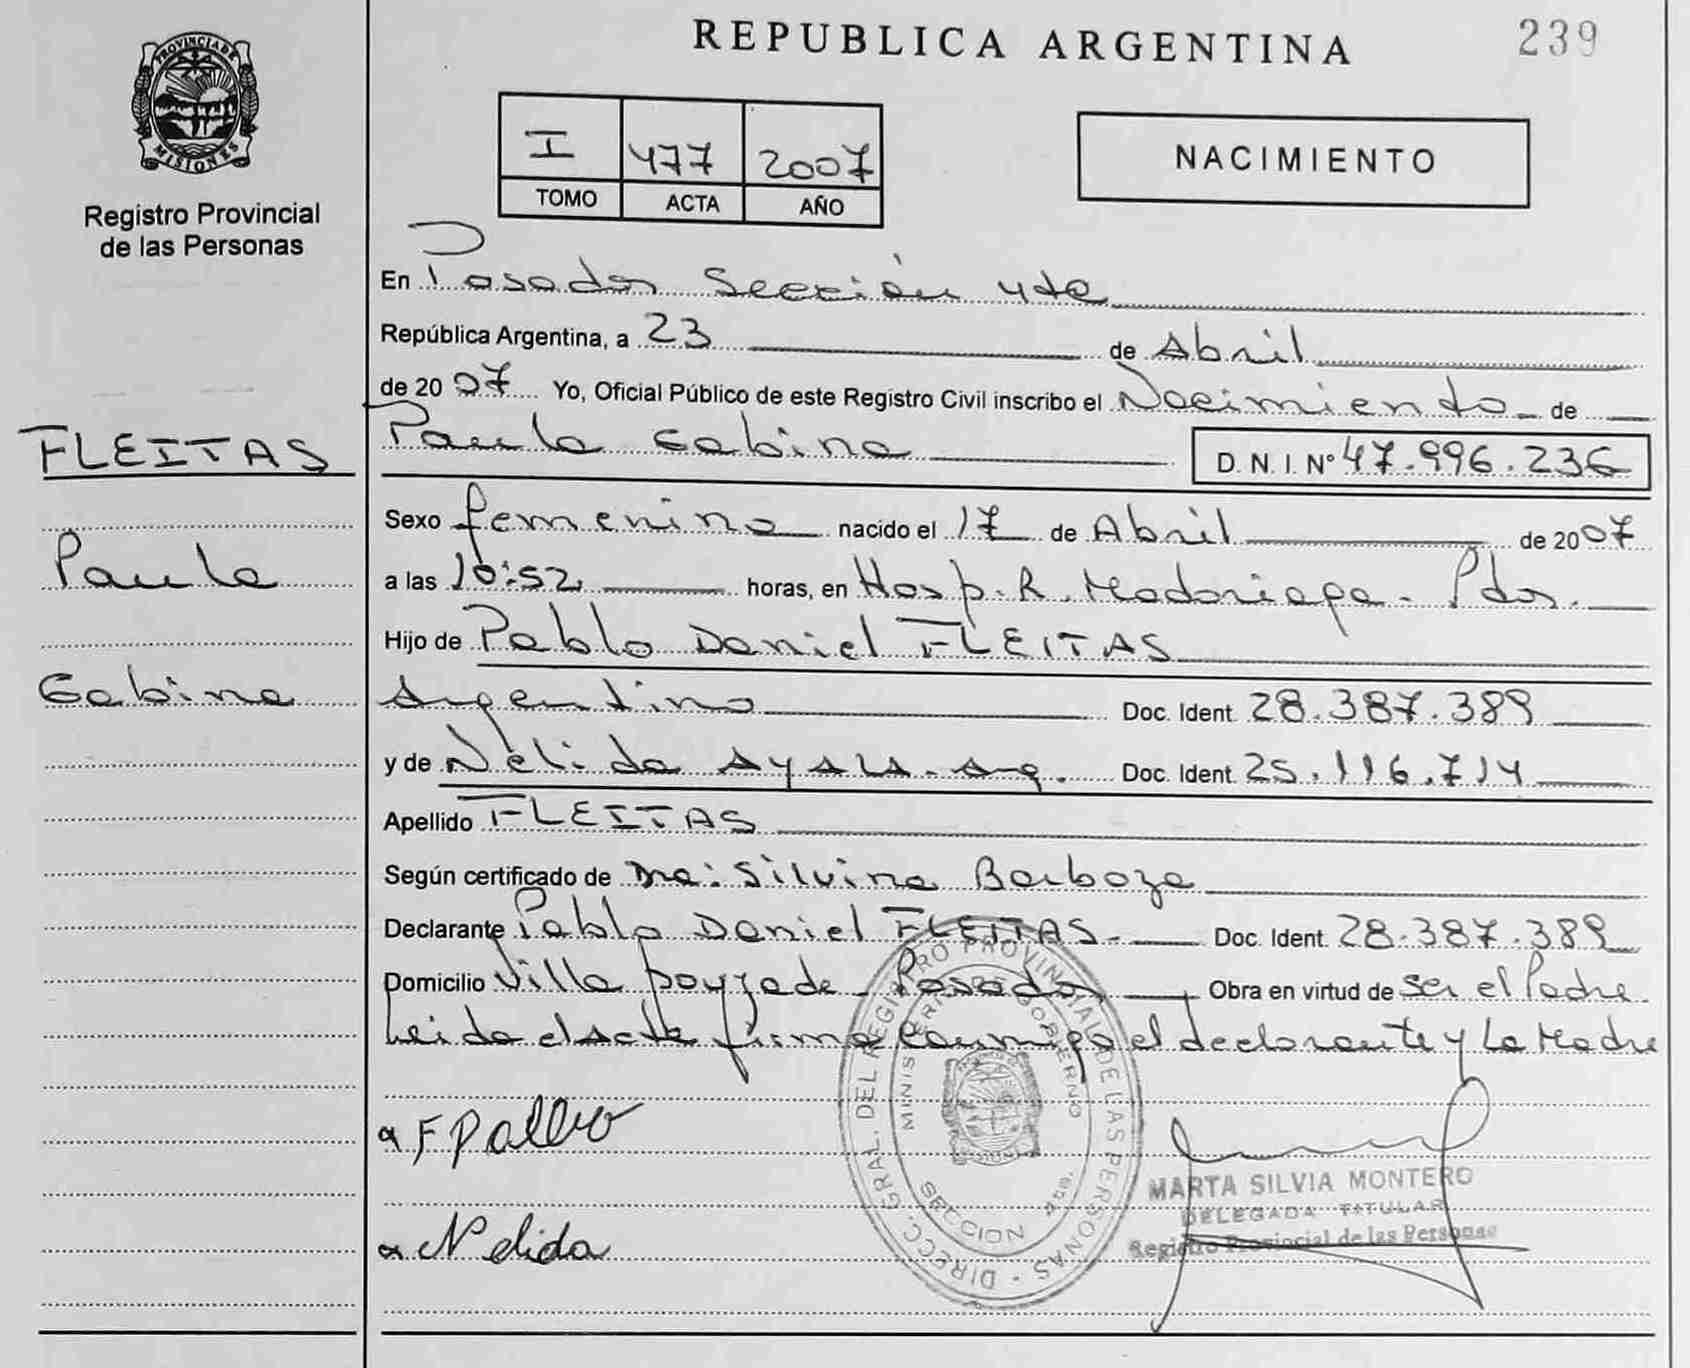 REPUBLICA ARGENTINA
239
PROVINCIA DE MISIONES
Registro Provincial
de las Personas
I 477 2007
TOMO ACTA AÑO
NACIMIENTO
En Posadas Sección 4ta
República Argentina, a 23 de Abril
de 2007 Yo, Oficial Público de este Registro Civil inscribo el Nacimiento de
FLEITAS
Paula Gabina
D.N.I. Nº 47.996.236
Sexo femenino nacido el 17 de Abril de 2007
Paula
a las 10:52 horas, en Hosp. R. Madariaga - Pdas.
Hijo de Pablo Daniel FLEITAS
Gabina
Argentino Doc. Ident. 28.387.389
y de Nélida AYALA - Arg. Doc. Ident. 25.116.714
Apellido FLEITAS
Según certificado de Dra: Silvina Barboza
Declarante Pablo Daniel FLEITAS - Doc. Ident. 28.387.389
Domicilio Villa Poujade - Posadas Obra en virtud de ser el Padre
Leida el Acta firma conmigo el declarante y La Madre
F Pablo
Nelida
DIRECC. GRAL. DEL REGISTRO PROVINCIAL DE LAS PERSONAS
MINISTERIO GOBIERNO
SECCION 4ta.
MARTA SILVIA MONTERO
DELEGADA TITULAR
Registro Provincial de las Personas